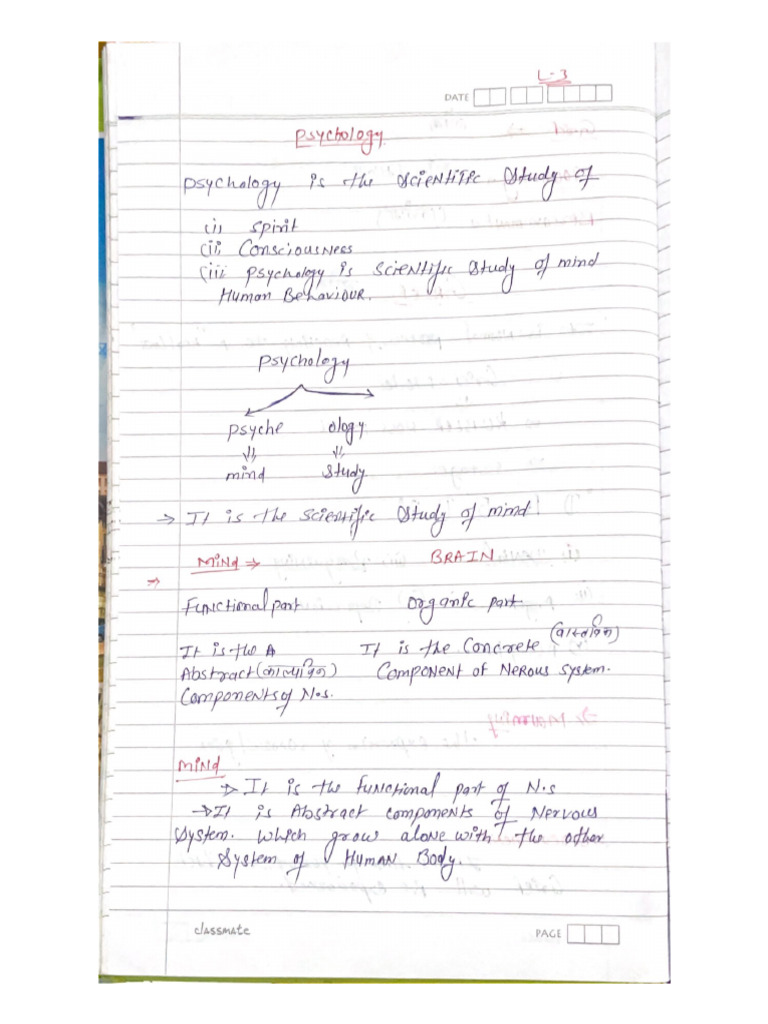 L-3
DATE
Psychology
Psychology is the scientific study of
(i) Spirit
(ii) Consciousness
(iii) Psychology is scientific study of mind
Human Behaviour.
Psychology
Psyche ology
mind study
→ It is the scientific study of mind!
Mind → BRAIN
→
Functional part Organic part
It is the A It is the Concrete (वास्तविक)
Abstract (काल्पनिक) Component of Nerous system.
Components of N.s.
Mind
→ It is the functional part of N.s
→ It is Abstract components of Nervous
System. Which grow alone with the other
System of Human Body.
classmate
PAGE